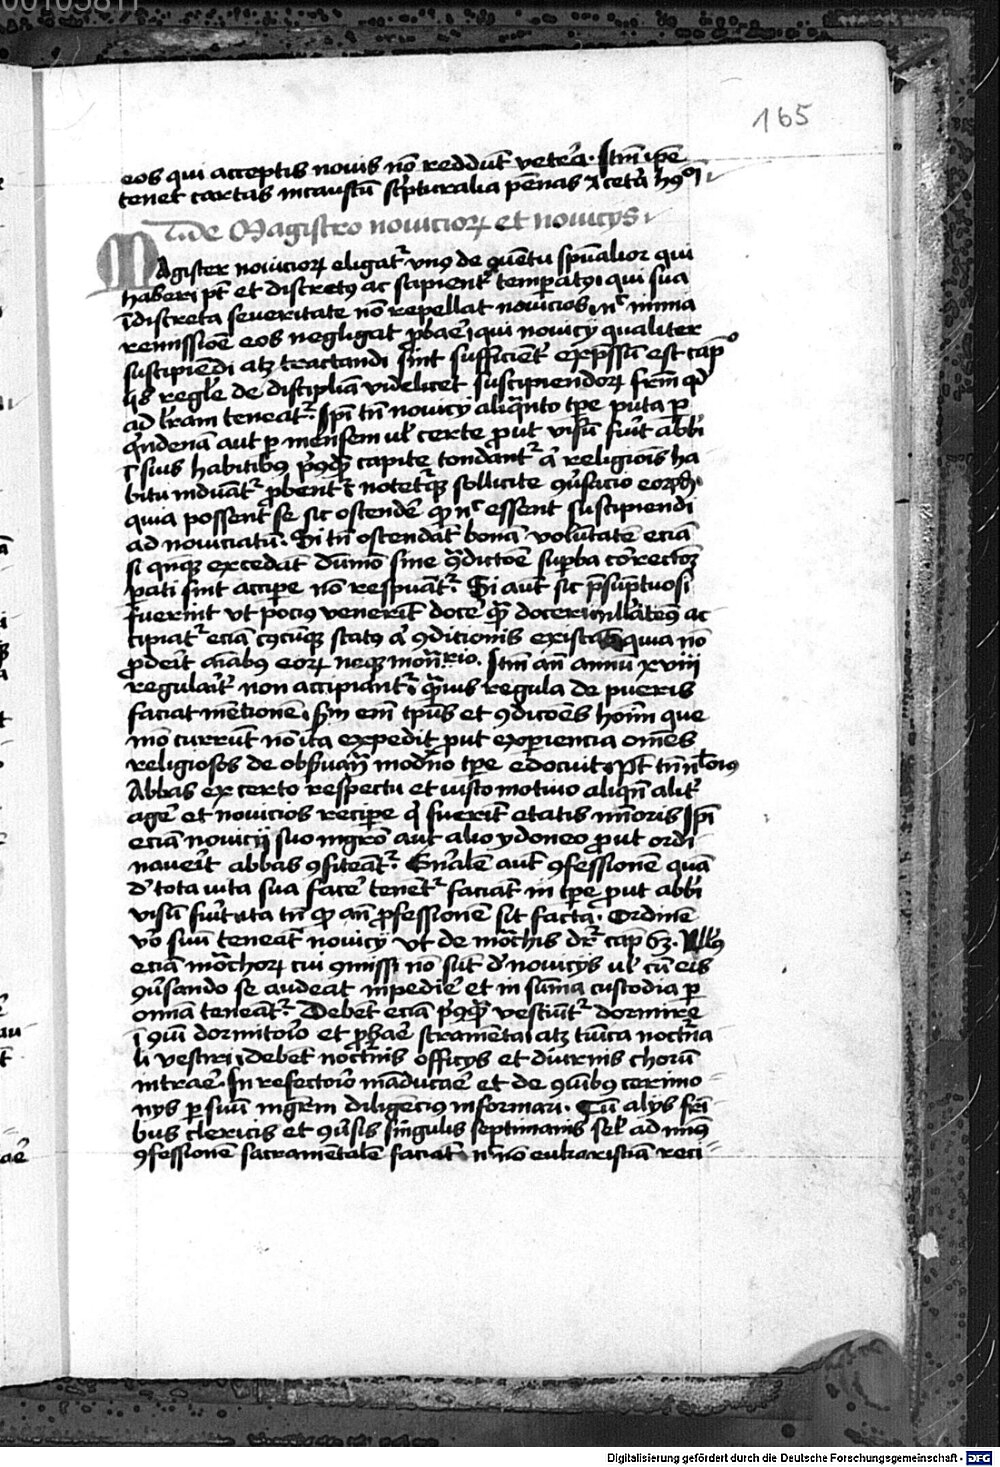 00105811
165
eos qui acceptis nouis nō reddūt vet̄a. Itm̄ ip̄e
tenet cartas incaustū sc̄pturalia pēnas ⁊ cetera
T. de Magistro nouicioꝝ et nouicys
Magister nouicioꝝ eligat᷑ vnꝰ de ꝯuentu spūalior qui
haberi pt̄ et discretꝰ ac sapient᷑ temperatꝰ qui sua
īdiscreta seueritate nō repellat nouicios nimia
remissiōe eos negligat ꝓbare qui nouicy qualiter
suscipiendi atꝫ tractandi sint sufficient᷑ exp̄ssū est cap̄º
regl̄e de disciplīa videlicet suscipiendoꝝ frm̄ qd̄
ad lr̄am teneat᷑. Ip̄i tn̄ nouicy aliqnto tp̄e puta ꝑ
qndenā aut ꝑ mensem ul̄ certe ꝓut visū fuīt abb̄i
ī suis habitibꝰ capite tondant᷑ religiōis ha
bitu induāt᷑ ꝓbent᷑ notet᷑ sollicite ꝯūsacio eoꝝ
quia possent se sic ostendē essent suscipiendi
ad nouiciatū. Si tn̄ ostendāt bonā volūtatē eciā
si excedāt dūmō sine ꝯ̄dictōe supba correctōꝫ
ꝑati sint accipe nō respuāt᷑. Si aut̄ sic p̄sūptuosi
fuerint vt pociꝰ venerīt docē qꝫ doceri ac
cipiat᷑ eciā statꝰ ꝯditionis existat quia nō
ꝓdeīt aīabꝰ eoꝝ neqꝫ mon̄rio. Itm̄ an̄ annū xviii
regularit᷑ non accipiant᷑ regula de pueris
faciat mentionē sm̄ em̄ tpūs et ꝯdicōēs hoīm que
mō currūt nō ita expedit ꝓut experiencia om̄es
religiosos de obsuan̄ mod̄no tp̄e edocuit pt̄ tn̄
Abbas ex certo respectu et iusto motiuo aliqn̄ alit᷑
agē et nouicios recipe q̄ fuerīt etatis mīoris Ip̄i
eciā nouicii suo mgr̄o aut alio ydoneo ꝓut ordi
nauerīt abbas ꝯfiteāt᷑. Gn̄alē aut̄ ꝯfessionē quā
d̄ tota uita sua facē tenēt᷑ faciāt in tp̄e ꝓut abb̄i
visū fuīt ita tn̄ qꝫ an̄ ꝓfessionē sit facta. Ordinē
vō suū teneāt nouicy vt de mōchis dr̄ cap̄ 63. Null̄ꝰ
eciā mōchoꝝ cui ꝯmissi nō sūt d̄ nouicys ul̄ cū eis
ꝯūsando se audeat inpediē et in sūma custodia ꝑ
omīa teneāt᷑. Debēt eciā vestiūt᷑ dormire
ī ꝯūi dormitorio et sacramēta atꝫ tūica noct̄na
li vestiri debēt noct̄nis officys et diurnis chorū
intrare. In refectorio māducare et de ꝯūibꝰ cerimo
nys ꝑ suū mgr̄m diligēciꝰ informari. Cū alys fr̄i
bus clericis et ꝯūsis singulis septimanis sel̄ ad minꝰ
ꝯfessionē sacramētalē faciāt nō eukaristiā reci
Digitalisierung gefördert durch die Deutsche Forschungsgemeinschaft - DFG